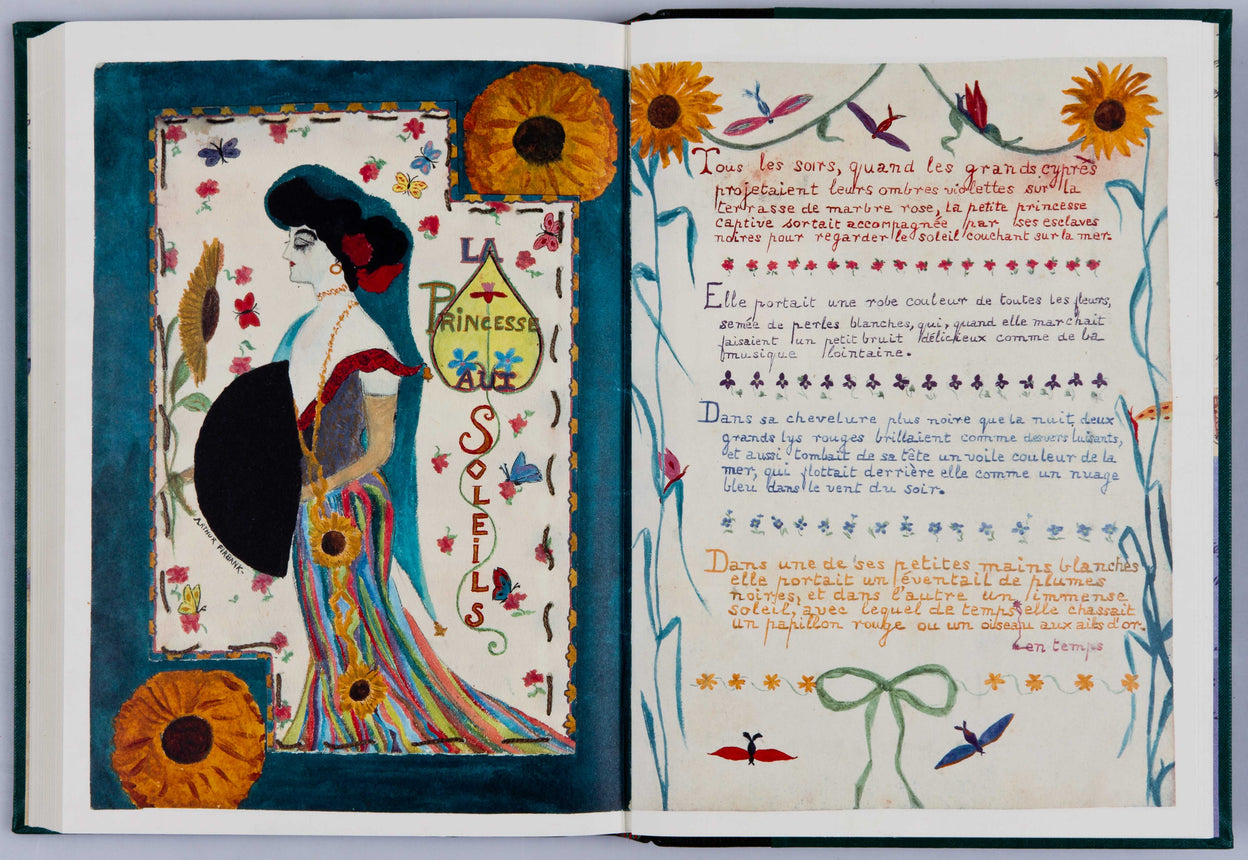 LA
PRINCESSE
AUX
SOLEILS
ARTHUR FIRBANK-
Tous les soirs, quand les grands cyprès
projetaient leurs ombres violettes sur la
terrasse de marbre rose, la petite princesse
captive sortait accompagnée par ses esclaves
noires pour regarder le soleil couchant sur la mer.
Elle portait une robe couleur de toutes les fleurs,
semée de perles blanches, qui, quand elle marchait
faisaient un petit bruit délicieux comme de la
musique lointaine.
Dans sa chevelure plus noire que la nuit, deux
grands lys rouges brillaient comme des vers luisants,
et aussi tombait de sa tête un voile couleur de la
mer, qui flottait derrière elle comme un nuage
bleu dans le vent du soir.
Dans une de ses petites mains blanches
elle portait un éventail de plumes
noires, et dans l'autre un immense
soleil, avec lequel de temps elle chassait
un papillon rouge ou un oiseau aux ailes d'or.
en temps